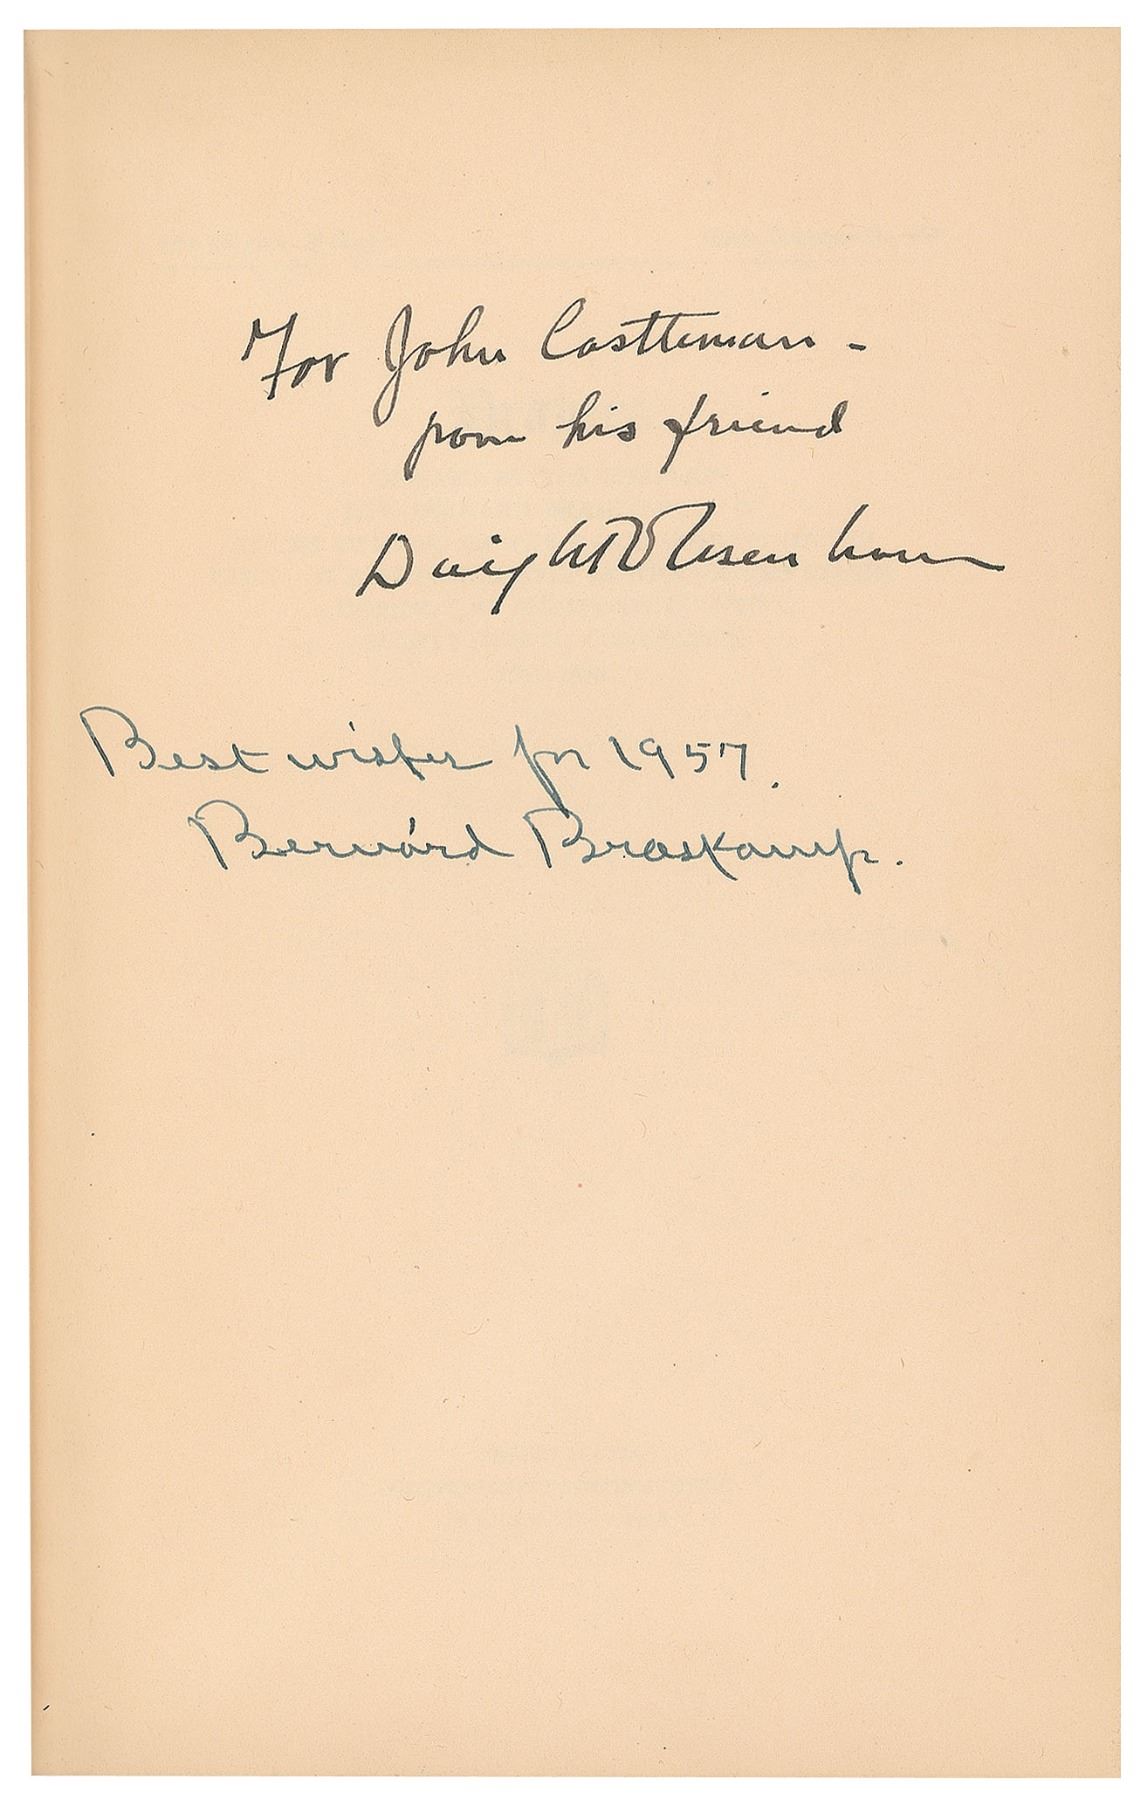 For John Castleman -
from his friend
Dwight D Eisenhower
Best wishes for 1957.
Bernard Braskamp.